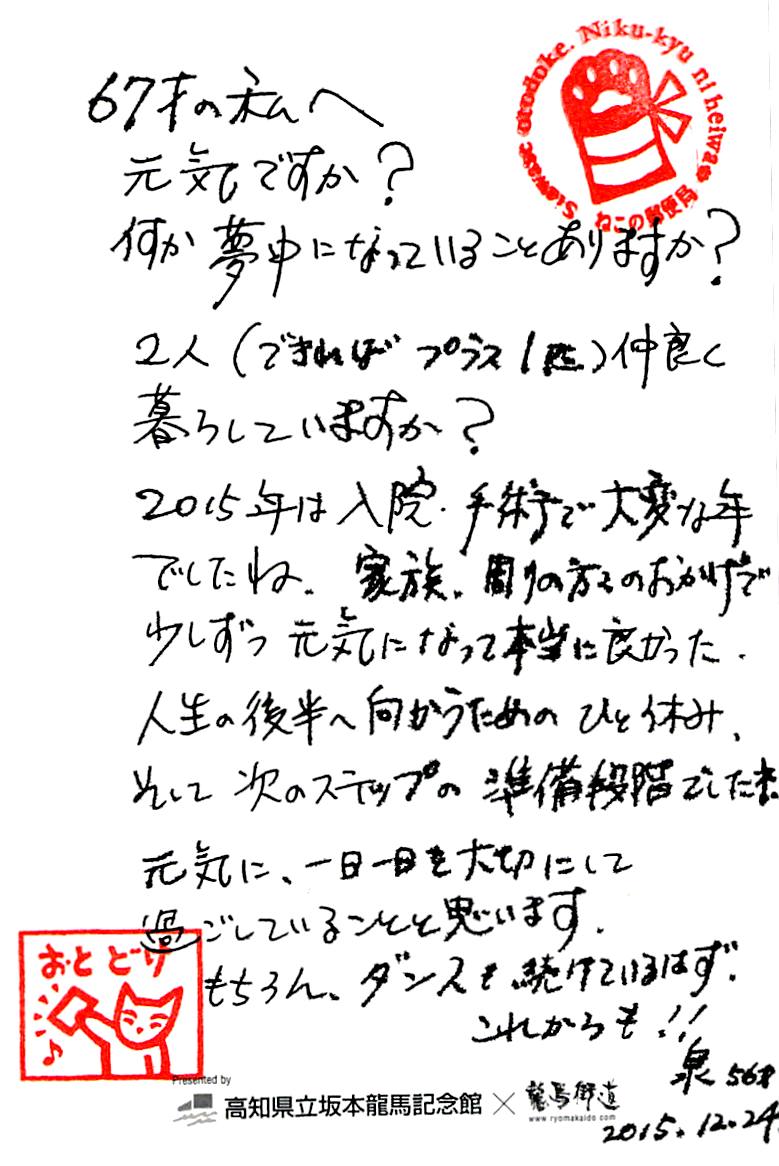 Siawase otodoke. Niku-kyu ni heiwa
ねこの郵便局
67才の私へ
元気ですか?
何か夢中になっていることありますか?
2人(できればプラス1匹)仲良く
暮らしていますか?
2015年は入院・手術で大変な年
でしたね。家族、周りの方々のおかげで
少しずつ元気になって本当に良かった。
人生の後半へ向かうためのひと休み、
そして次のステップの準備段階でしたね。
元気に、一日一日を大切にして
過ごしていることと思います。
もちろん、ダンスも続けているはず。
これからも!!
おとどけ
泉 56才
2015.12.24.
Presented by
高知県立坂本龍馬記念館 × 龍馬街道
www.ryomakaido.com